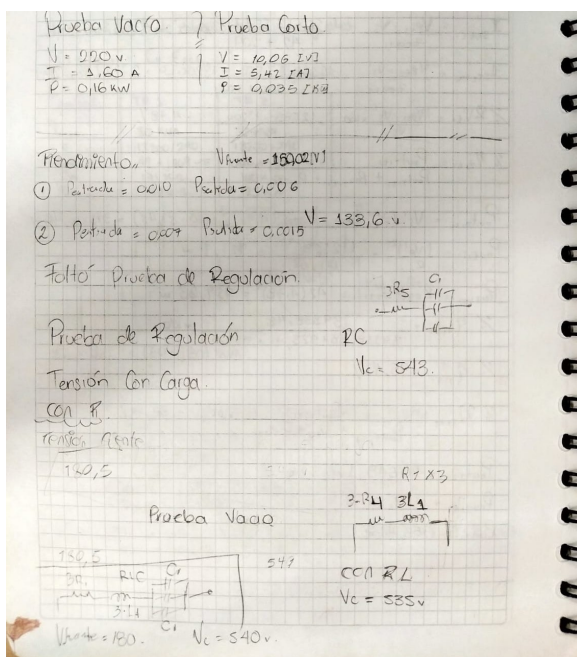 Prueba Vacío
V = 220 v
I = 1,60 A
P = 0,16 KW
Prueba Corto
V = 10,06 [V]
I = 5,42 [A]
P = 0,035 [K]
Rendimiento
Vfuente = 150,02 [V]
① Pentrada = 0.010 Psalida = 0,006
② Pentrada = 0,009 Psalida = 0.0015
V = 133,6 v
Faltó Prueba de Regulación.
3R5 C1
Prueba de Regulación
RC
Vc = 543.
Tensión Con Carga.
con R
Tensión fuente
180,5
R1 X3
3-R4 3L1
Prueba Vacio
180,5
549
3R1 RLC C1
3-L1
C1
con RL
Vc = 535 v
Vfuente = 180. Vc = 540 v.